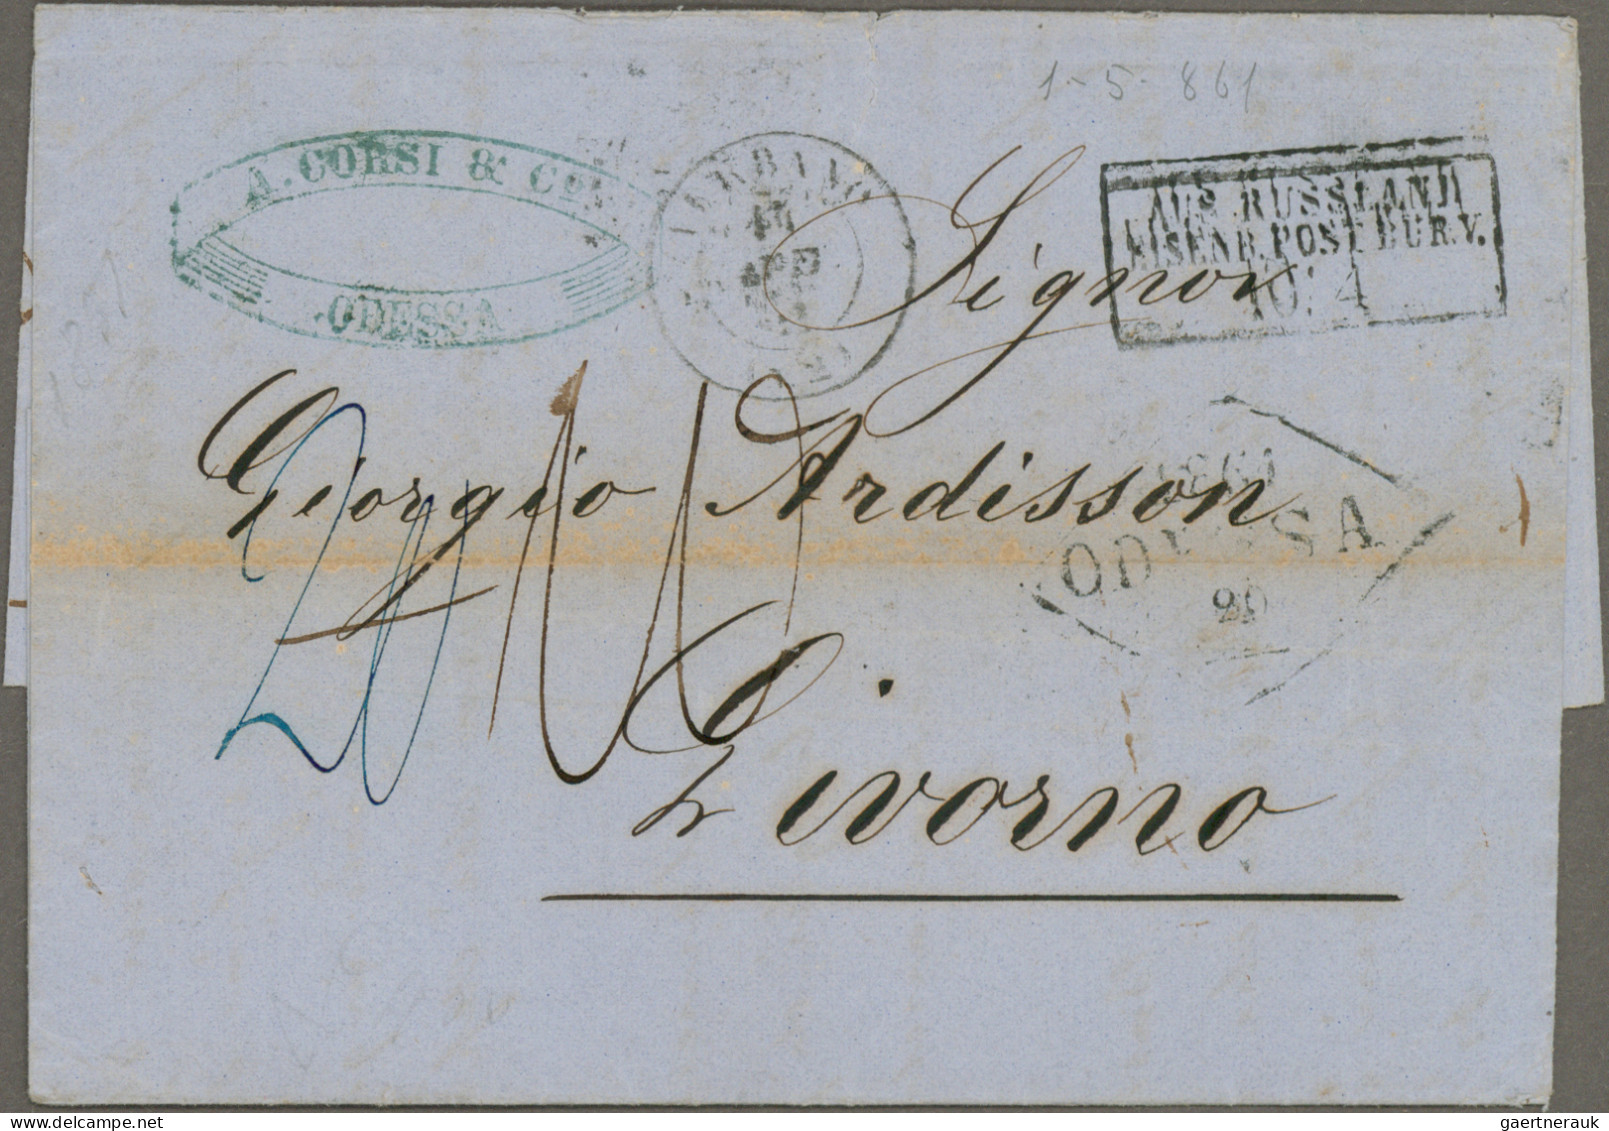 1-5-861
A. CORSI & Co
ODESSA
AUS RUSSLAND
EISENB. POST BUR. V.
10. 4
Signor
Giorgio Ardisson
Livorno
1861
ODESSA
20
gaertnerauk